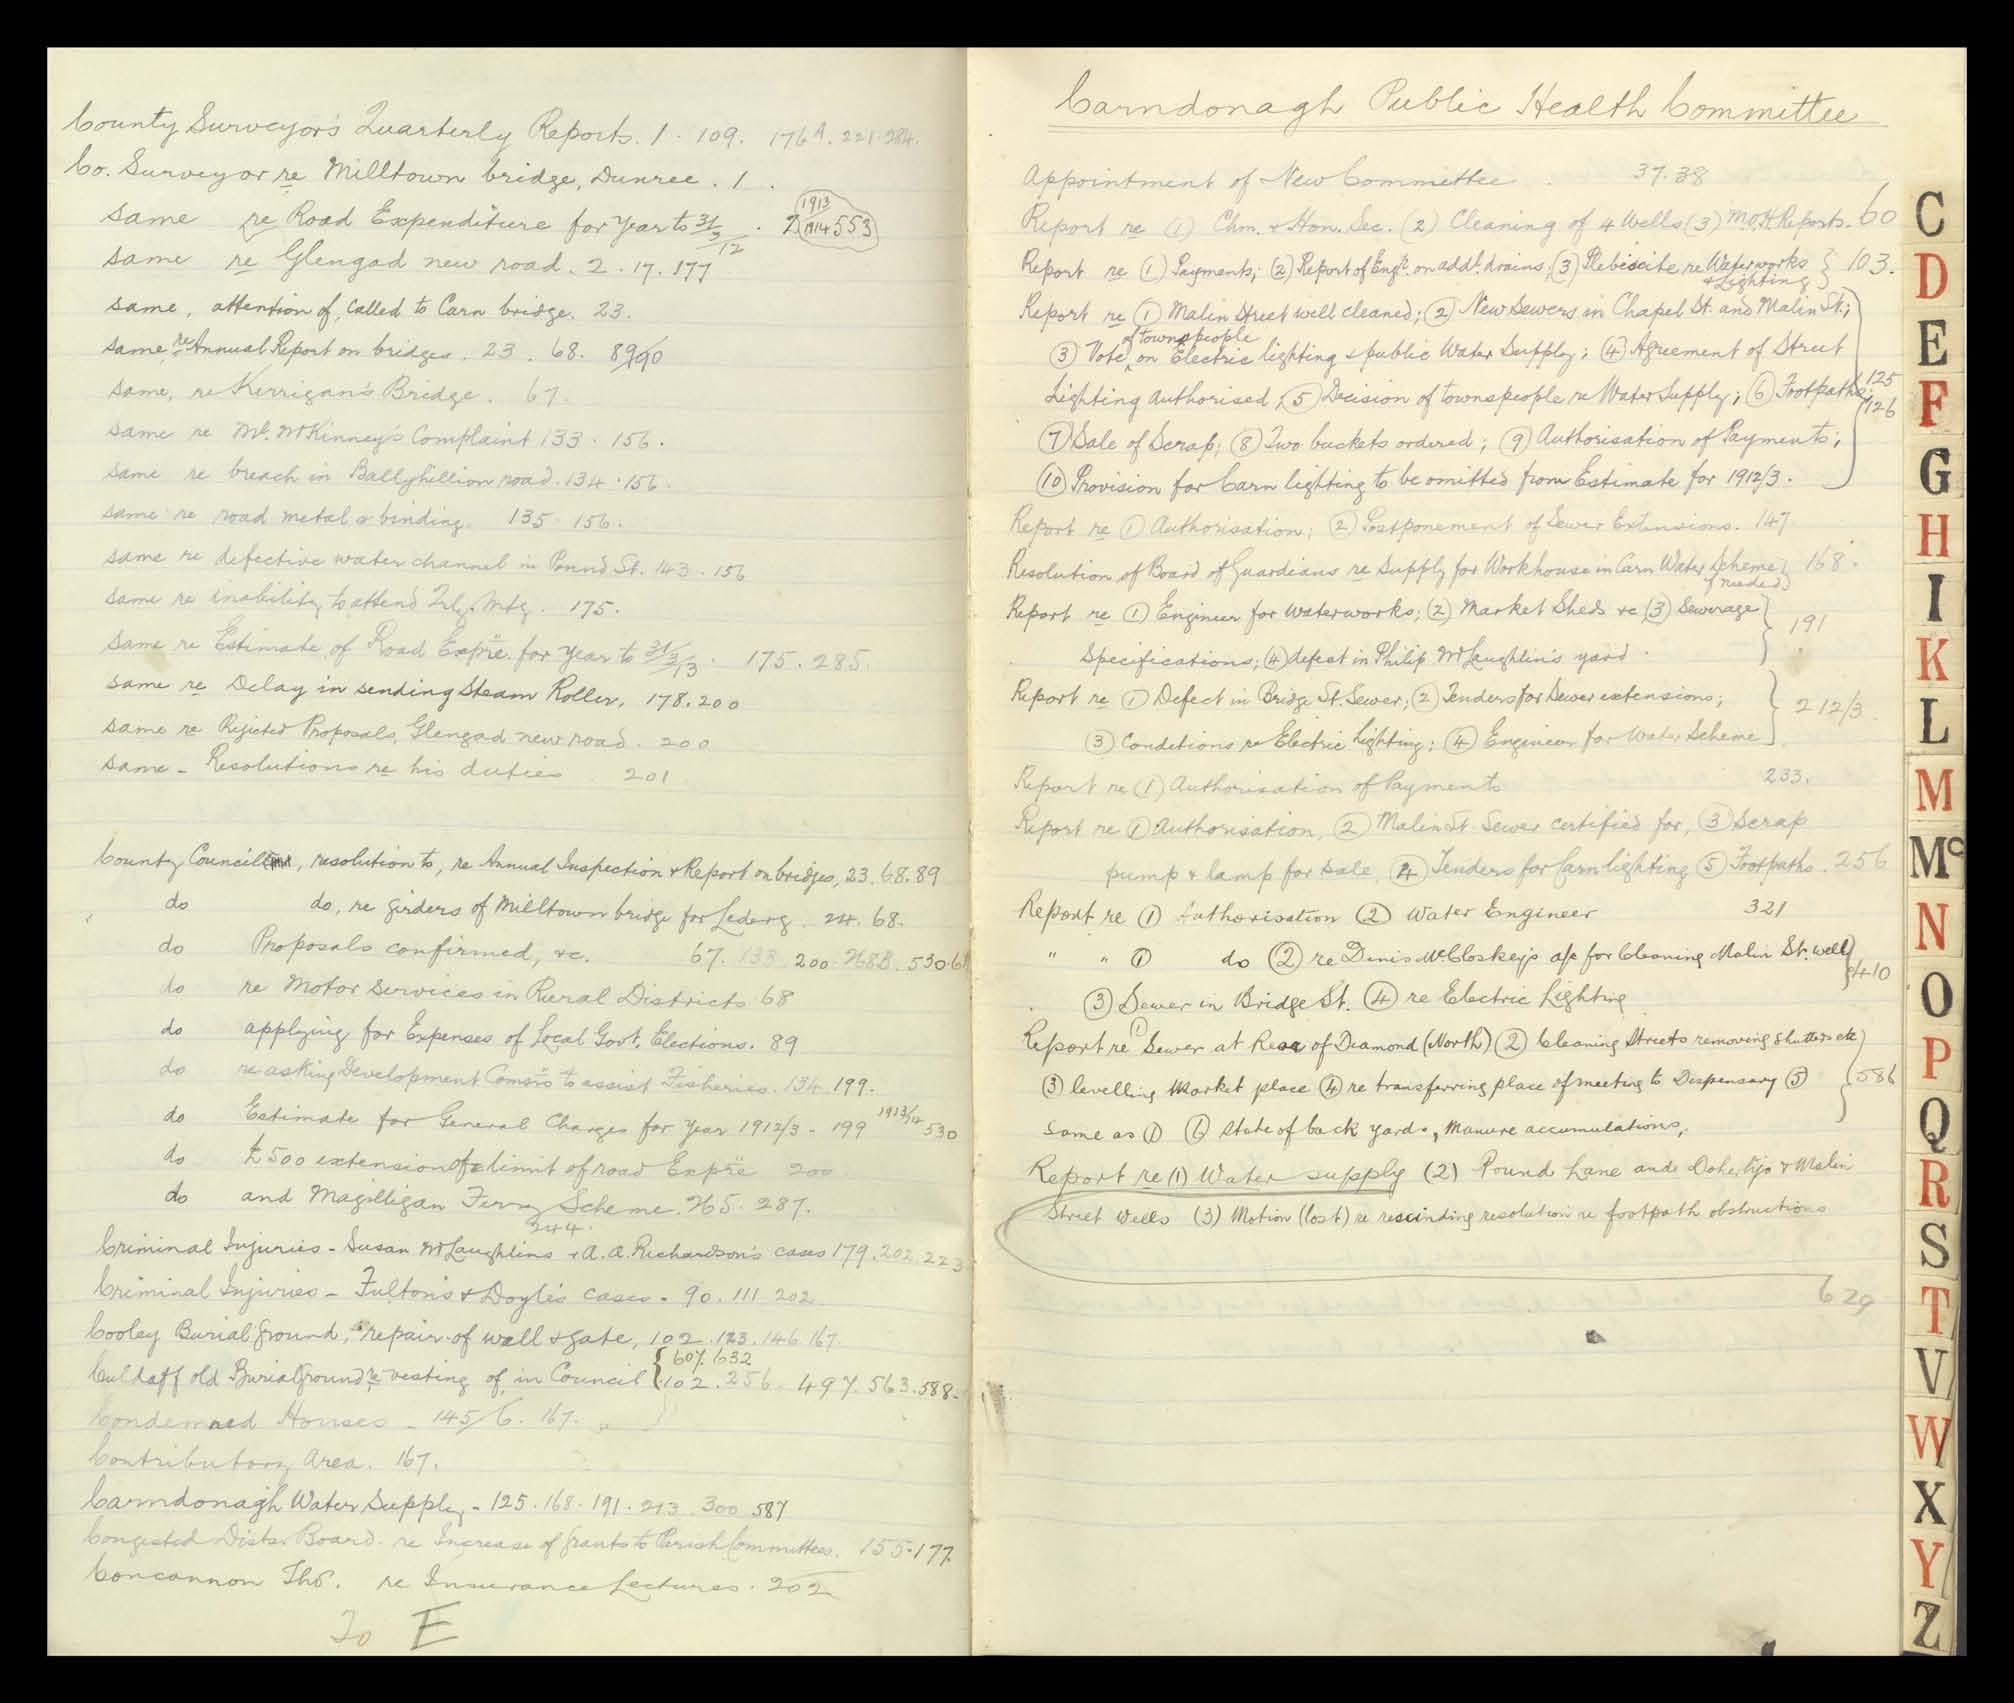 County Surveyor's Quarterly Reports. 1. 109. 176A. 221. 284.
Co. Surveyor re Milltown bridge, Dunree. 1.
same re Road Expenditure for year to 31/3/12. 2 1913/1914 553
same re Glengad new road. 2. 17. 177
same, attention of, called to Carn bridge. 23.
same, re Annual Report on bridges. 23. 68. 89/90
same, re Kerrigan's Bridge. 67.
same re Mr. McKinney's Complaint 133. 156.
same re breach in Ballyhillion road. 134. 156.
same re road metal & binding. 135. 156.
same re defective water channel in Pound St. 143. 156
same re inability to attend Qrly. Mtg. 175.
same re Estimate of Road Expre. for year to 31/3/13. 175. 285.
same re Delay in sending Steam Roller. 178. 200
same re Rejected Proposals, Glengad new road. 200
same - Resolutions re his duties. 201
County Council, resolution to, re Annual Inspection & Report on bridges, 23. 68. 89
do do, re girders of Milltown bridge for Lederg. 24. 68.
do Proposals confirmed, &c. 67. 133. 200. 268B. 530.
do re Motor Services in Rural Districts 68
do applying for Expenses of Local Govt. Elections. 89
do re asking Development Comsnrs to assist Fisheries. 134. 199.
do Estimate for General Charges for year 1912/3 - 199 1913/14 530
do £500 extension of limit of road Expre 200
do and Magilligan Ferry Scheme. 265. 287.
244.
Criminal Injuries - Susan McLaughlins & A. A. Richardson's cases 179. 202. 223
Criminal Injuries - Fulton's & Doyle's cases. 90. 111 202
Cooley Burial Ground, repair of wall & gate, 102. 123. 146. 167.
607. 632
Culdaff old Burial Ground re vesting of, in Council { 102. 256. 497. 563. 588.
Condemned Houses - 145/6. 167.
Contributory Area. 167.
Carndonagh Water Supply - 125. 168. 191. 213. 300 587
Congested Dists. Board. re Increase of Grants to Parish Committees. 155. 177.
Concannon Ths. re Insurance Lectures. 202
To E
Carndonagh Public Health Committee
Appointment of New Committee. 37. 38
Report re (1) Chm. & Hon. Sec. (2) Cleaning of 4 Wells (3) M.O.H Reports. 60
Report re (1) Payments; (2) Report of Engr. on addl. drains; (3) Plebiscite re Waterworks } 103.
& Lighting
Report re (1) Malin Street well cleaned; (2) New Sewers in Chapel St. and Malin St.;
of townspeople
(3) Vote on Electric lighting & public Water Supply; (4) Agreement of Street
Lighting authorised, (5) Decision of townspeople re Water Supply; (6) Footpaths; 125
126
(7) Sale of Scrap; (8) Two buckets ordered; (9) Authorisation of Payments;
(10) Provision for Carn lighting to be omitted from Estimate for 1912/3.
Report re (1) Authorisation; (2) Postponement of Sewer Extensions. 147
Resolution of Board of Guardians re supply for Workhouse in Carn Water Scheme, 168.
if needed
Report re (1) Engineer for Waterworks; (2) Market Sheds &c (3) Sewerage } 191
Specifications; (4) defect in Philip McLaughlin's yard.
Report re (1) Defect in Bridge St. Sewer; (2) Tenders for Sewer extensions; } 212/3.
(3) Conditions re Electric lighting; (4) Engineer for Water Scheme
Report re (1) Authorisation of Payments 233.
Report re (1) Authorisation, (2) Malin St. Sewer certified for, (3) Scrap
pump & lamp for sale, (4) Tenders for Carn lighting (5) Footpaths. 256
Report re (1) Authorisation (2) Water Engineer 321
" " (1) do (2) re Denis McCloskey's a/c for Cleaning Malin St. well } 410
(3) Sewer in Bridge St. (4) re Electric Lighting
Report re (1) Sewer at Rear of Diamond (North) (2) Cleaning Streets removing shutters etc
(3) levelling market place (4) re transferring place of meeting to Dispensary (5) } 586
same as (1) (6) State of back yards, manure accumulations,
Report re (1) Water supply (2) Pound Lane and Doherty's & Malin
Street wells (3) Motion (lost) re rescinding resolution re footpath obstructions
629
C
D
E
F
G
H
I
K
L
M
Mc
N
O
P
Q
R
S
T
V
W
X
Y
Z